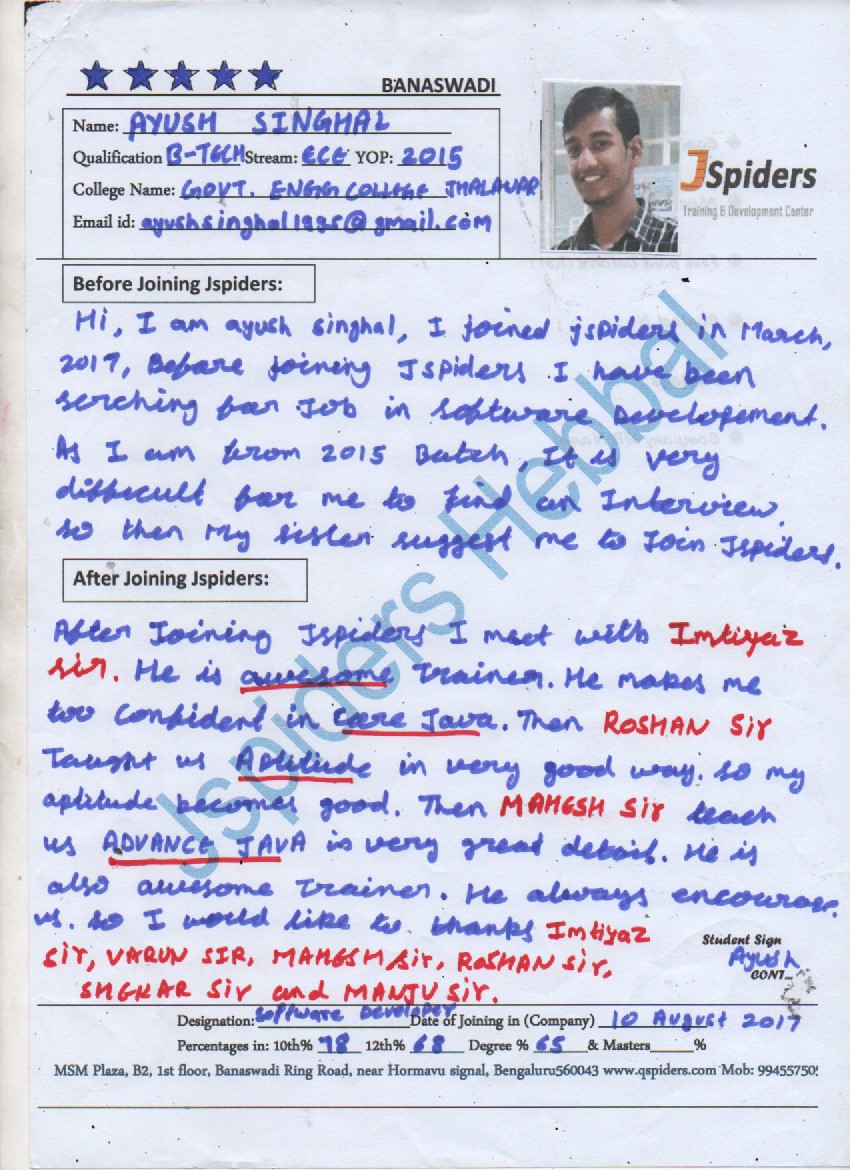 BANASWADI
Name: AYUSH SINGHAL
Qualification B-TECH Stream: ECE YOP: 2015
College Name: GOVT. ENGG COLLEGE JHALAWAR
Email id: ayushsinghal1995@gmail.com
JSpiders
Training & Development Center
Before Joining Jspiders:
Hi, I am ayush singhal, I joined jspiders in March,
2017, Before joining JSpiders I have been
serching for Job in software Developement.
As I am from 2015 Batch, It is very
difficult for me to find an Interview.
so then My sister suggest me to Join Jspiders.
After Joining Jspiders:
After Joining Jspiders I meet with Imtiyaz
sir. He is awesome Trainer. He makes me
too confident in Core Java. Then ROSHAN Sir
Taught us Aptitude in very good way. so my
aptitude becomes good. Then MAHESH Sir teach
us ADVANCE JAVA in very great detail. He is
also awesome Trainer. He always encourage
us. so I would like to thanks Imtiyaz
Sir, VARUN SIR, MAHESH Sir, ROSHAN Sir,
SHEKAR Sir and MANJU Sir.
Student Sign
Ayush
CONT...
Designation: Software Developer Date of Joining in (Company) 10 August 2017
Percentages in: 10th% 78 12th% 68 Degree % 65 & Masters %
MSM Plaza, B2, 1st floor, Banaswadi Ring Road, near Hormavu signal, Bengaluru560043 www.qspiders.com Mob: 99455750
Jspiders Hebbal